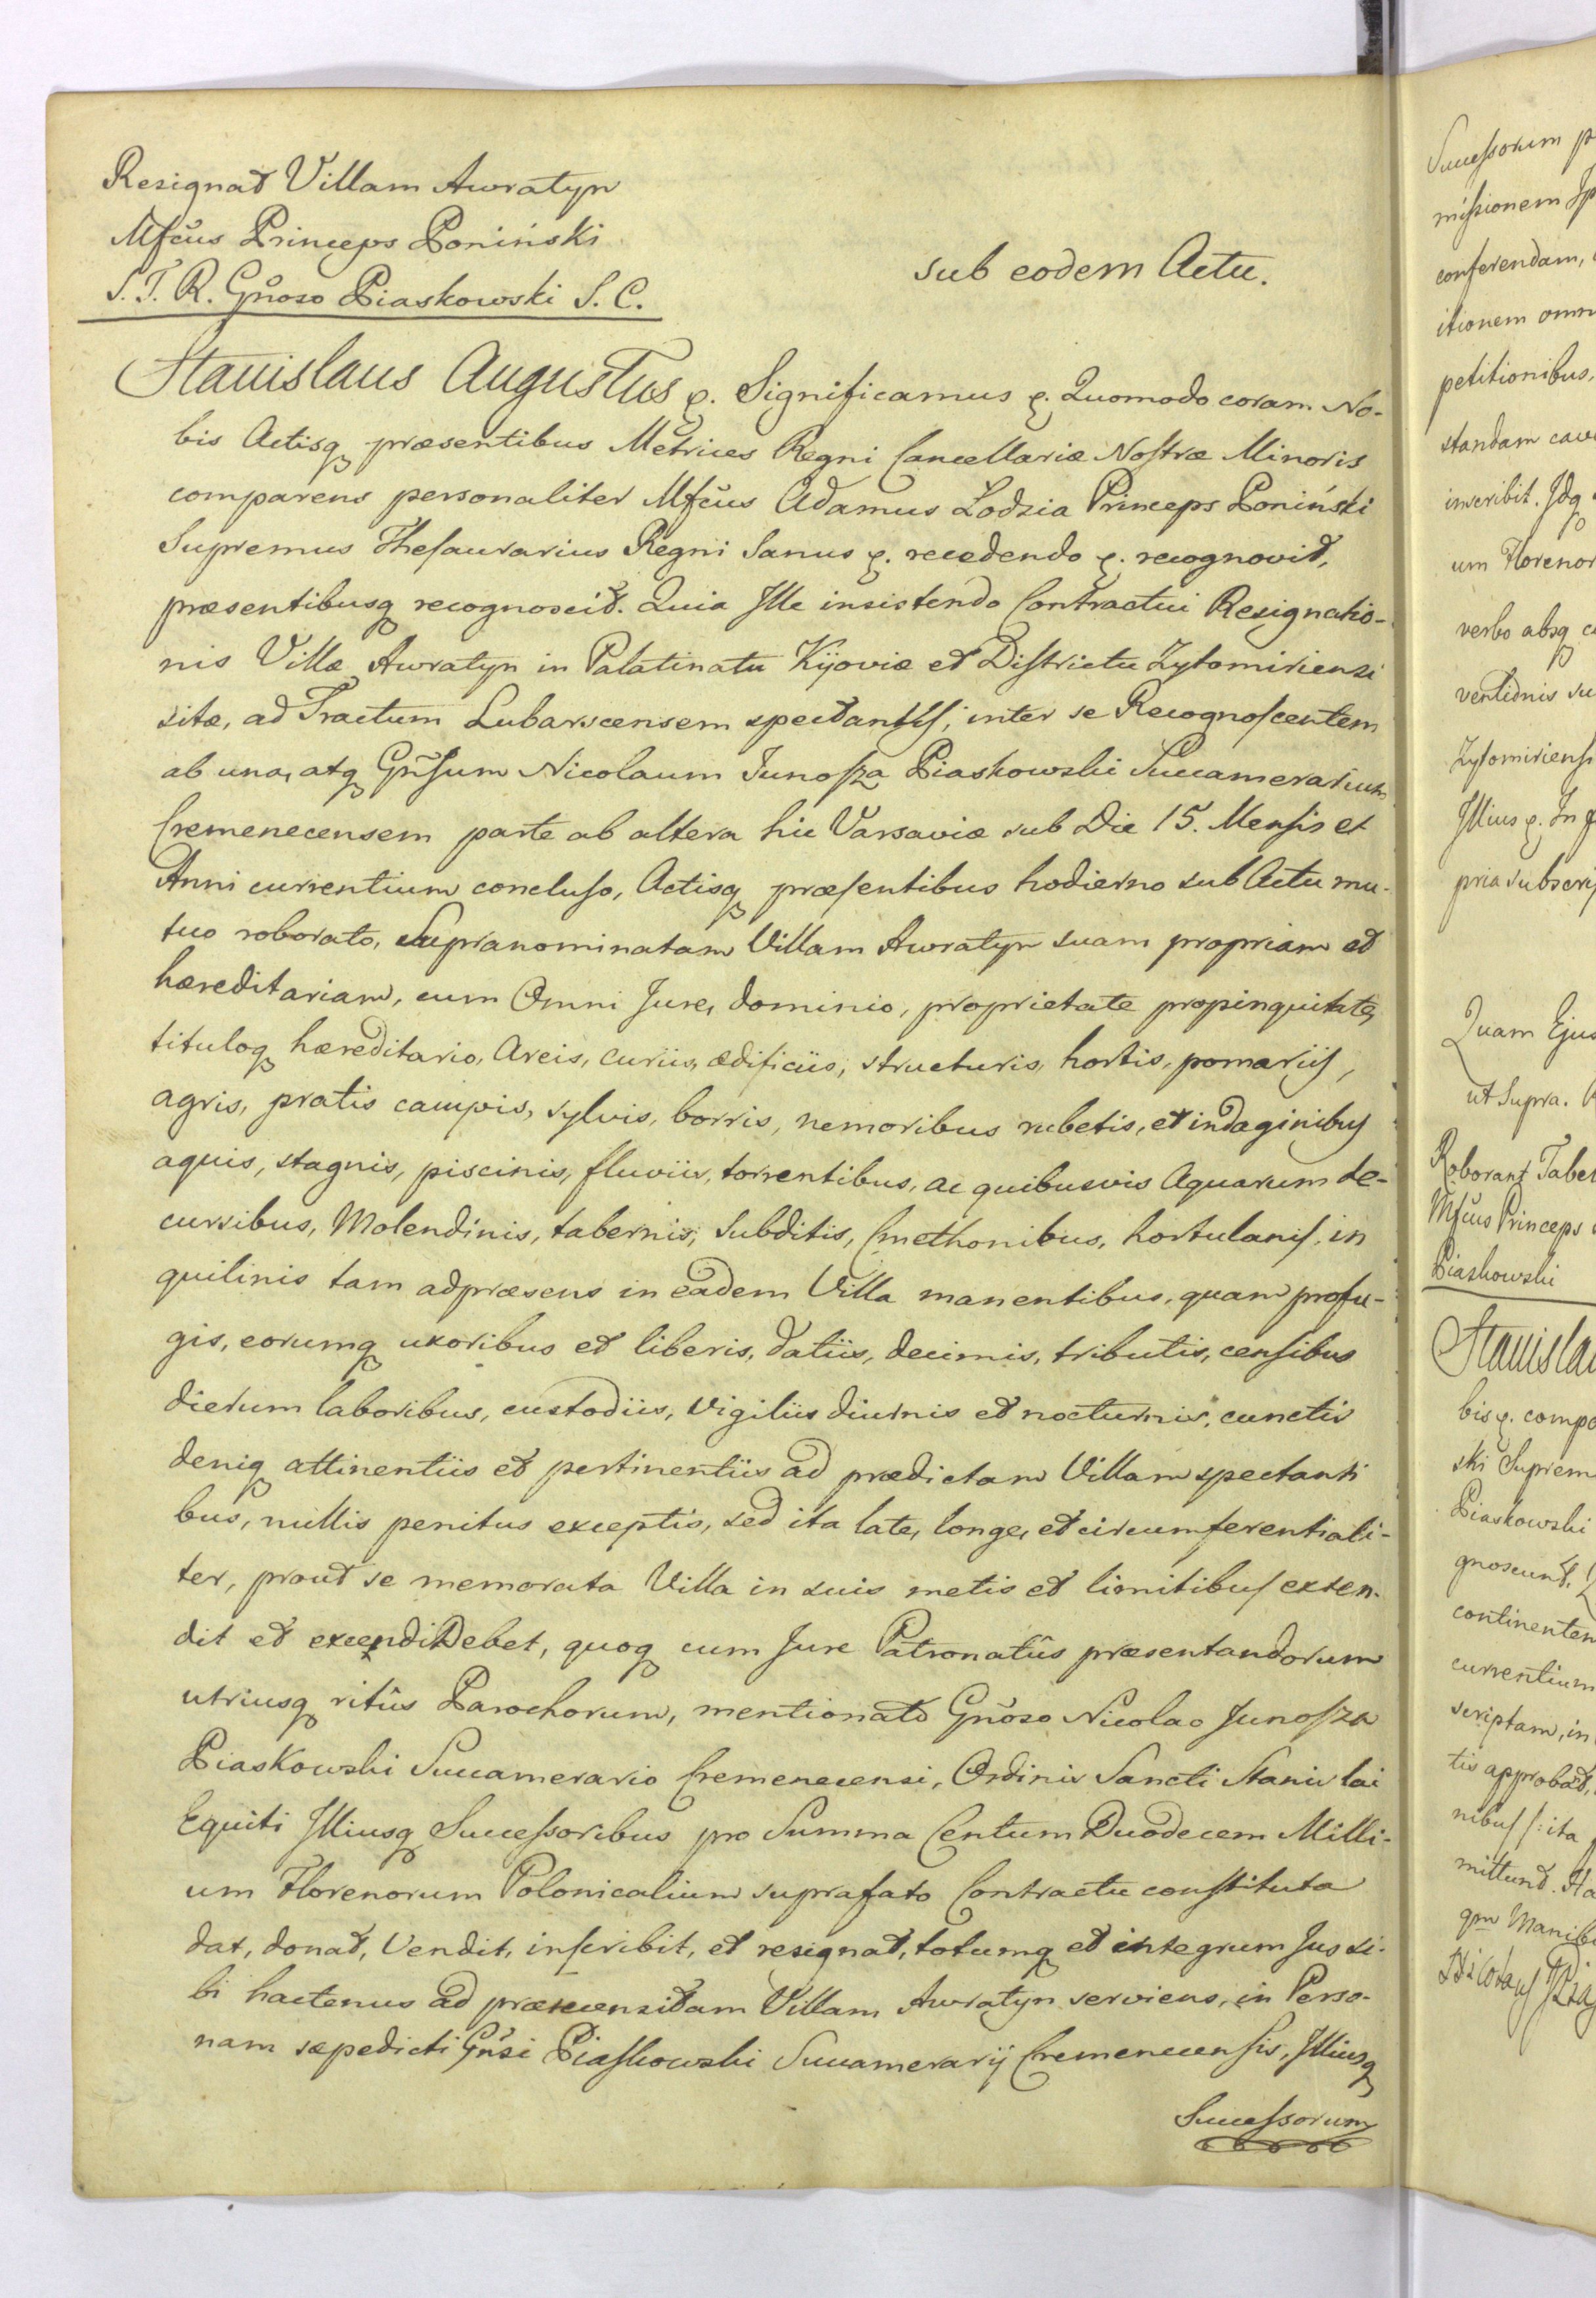 Resignat Villam Awratyn
Mfcus Princeps Poniński
S. T. R. Gnoso Piaskowski S. C.
sub eodem Actu.
Stanislaus Augustus &. Significamus &. Quomodo coram No-
bis Actisq præsentibus Metrices Regni Cancellariæ Nostræ Minoris
comparens personaliter Mfcus Adamus Lodzia Princeps Poniński
Supremus Thesaurarius Regni Sanus &. recedendo &. recognovit,
præsentibusq recognoscit. Quia Ille insistendo Contractui Resignatio-
nis Villæ Awratyn in Palatinatu Kijoviæ et Districtu Zytomiriensi
sitæ, ad Tractum Lubarscensem spectantis, inter se Recognoscentem
ab una, atq Gnsum Nicolaum Junosza Piaskowski Succamerarium
Cremenecensem parte ab altera hic Varsaviæ sub Die 15. Mensis et
Anni currentium concluso, Actisq præsentibus hodierno sub Actu mu-
tuo roborato, Supranominatam Villam Awratyn suam propriam et
hæreditariam, cum Omni Jure, dominio, proprietate propinquitate,
tituloq hæreditario, Areis, curiis, ædificiis, structuris, hortis, pomariis,
agris, pratis campis, sylvis, borris, nemoribus rubetis, et indaginibus
aquis, stagnis, piscinis, fluviis, torrentibus, ac quibusvis Aquarum de-
cursibus, Molendinis, tabernis, Subditis, Cmethonibus, hortulanis, in
quilinis tam adpræsens in eadem Villa manentibus, quam profu-
gis, eorumq uxoribus et liberis, datiis, decimis, tributis, censibus
dierum laboribus, custodiis, Vigiliis diurnis et nocturnis, cunctis
deniq attinentiis et pertinentiis ad prædictam Villam spectanti
bus, nullis penitus exceptis, sed ita late, longe, et circumferentiali-
ter, prout se memorata Villa in suis metis et limitibus exten-
dit et extendi Debet, quoq cum Jure Patronatûs præsentandorum
utriusq ritûs Parochorum, mentionato Gnoso Nicolao Junosza
Piaskowski Succamerario Cremenecensi, Ordinis Sancti Stanislai
Equiti Illiusq Successoribus pro Summa Centum Duodecem Milli-
um Florenorum Polonicalium suprafato Contractu constituta
dat, donat, Vendit, inscribit, et resignat, totumq et integrum Jus si-
bi hactenus ad præcensitam Villam Awratyn serviens, in Perso-
nam sæpedicti Gnsi Piaskowski Succamerarij Cremenecensis, Illiusq
Successorum
Successorum
missionem
conferendam,
itionem
petitionibus,
standam
inscribit. Idq
um
verbo absq
Zytomiriensi
Illius &. In
Quam Ejus
ut Supra.
Roborant
Mfcus Princeps
Piaskowski
bis &.
ski
Piaskowski
gnoscunt,
currentium
mittunt.